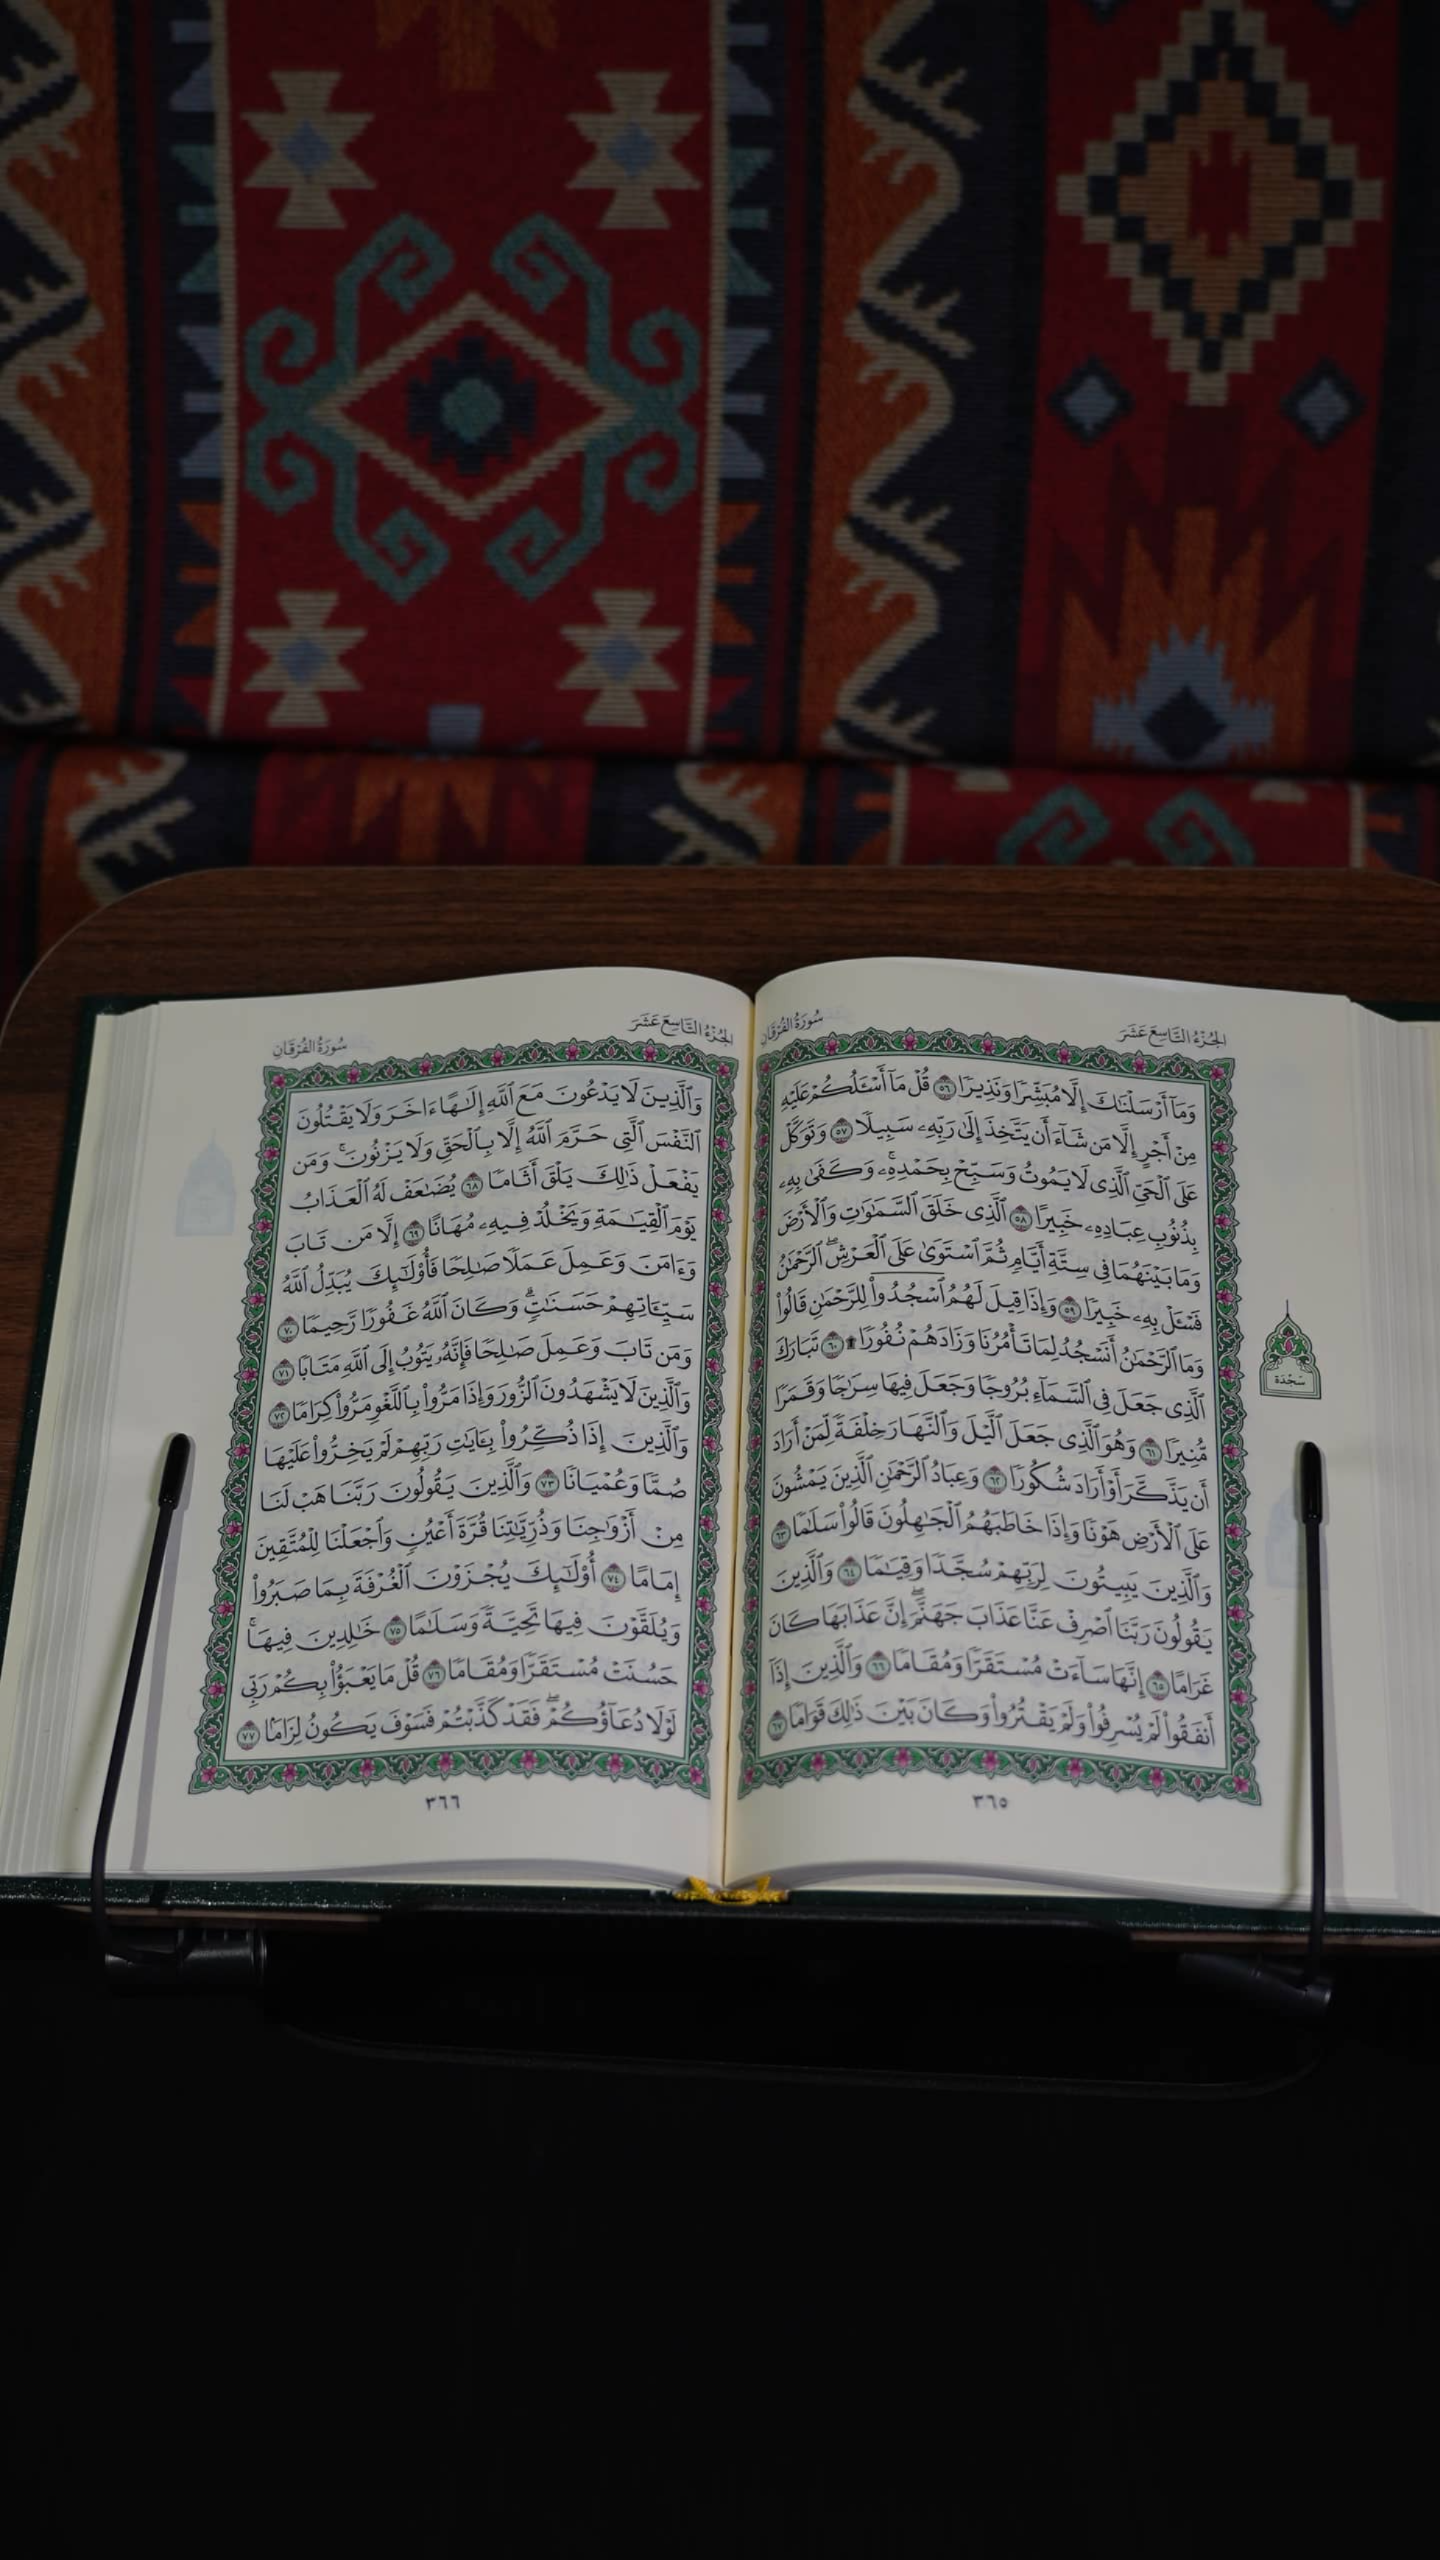 الجُزْءُ التَّاسِعَ عَشَرَ
سُورَةُ الفُرْقَانِ
وَمَآ أَرْسَلْنَٰكَ إِلَّا مُبَشِّرًا وَنَذِيرًا ٥٦ قُلْ مَآ أَسْـَٔلُكُمْ عَلَيْهِ
مِنْ أَجْرٍ إِلَّا مَن شَآءَ أَن يَتَّخِذَ إِلَىٰ رَبِّهِۦ سَبِيلًا ٥٧ وَتَوَكَّلْ
عَلَى ٱلْحَىِّ ٱلَّذِى لَا يَمُوتُ وَسَبِّحْ بِحَمْدِهِۦۚ وَكَفَىٰ بِهِۦ
بِذُنُوبِ عِبَادِهِۦ خَبِيرًا ٥٨ ٱلَّذِى خَلَقَ ٱلسَّمَٰوَٰتِ وَٱلْأَرْضَ
وَمَا بَيْنَهُمَا فِى سِتَّةِ أَيَّامٍ ثُمَّ ٱسْتَوَىٰ عَلَى ٱلْعَرْشِۖ ٱلرَّحْمَٰنُ
فَسْـَٔلْ بِهِۦ خَبِيرًا ٥٩ وَإِذَا قِيلَ لَهُمُ ٱسْجُدُوا۟ لِلرَّحْمَٰنِ قَالُوا۟
وَمَا ٱلرَّحْمَٰنُ أَنَسْجُدُ لِمَا تَأْمُرُنَا وَزَادَهُمْ نُفُورًا ۩ ٦٠ تَبَارَكَ
ٱلَّذِى جَعَلَ فِى ٱلسَّمَآءِ بُرُوجًا وَجَعَلَ فِيهَا سِرَٰجًا وَقَمَرًا
مُّنِيرًا ٦١ وَهُوَ ٱلَّذِى جَعَلَ ٱلَّيْلَ وَٱلنَّهَارَ خِلْفَةً لِّمَنْ أَرَادَ
أَن يَذَّكَّرَ أَوْ أَرَادَ شُكُورًا ٦٢ وَعِبَادُ ٱلرَّحْمَٰنِ ٱلَّذِينَ يَمْشُونَ
عَلَى ٱلْأَرْضِ هَوْنًا وَإِذَا خَاطَبَهُمُ ٱلْجَٰهِلُونَ قَالُوا۟ سَلَٰمًا ٦٣
وَٱلَّذِينَ يَبِيتُونَ لِرَبِّهِمْ سُجَّدًا وَقِيَٰمًا ٦٤ وَٱلَّذِينَ
يَقُولُونَ رَبَّنَا ٱصْرِفْ عَنَّا عَذَابَ جَهَنَّمَۖ إِنَّ عَذَابَهَا كَانَ
غَرَامًا ٦٥ إِنَّهَا سَآءَتْ مُسْتَقَرًّا وَمُقَامًا ٦٦ وَٱلَّذِينَ إِذَآ
أَنفَقُوا۟ لَمْ يُسْرِفُوا۟ وَلَمْ يَقْتُرُوا۟ وَكَانَ بَيْنَ ذَٰلِكَ قَوَامًا ٦٧
سَجْدَة
٣٦٥
الجُزْءُ التَّاسِعَ عَشَرَ
سُورَةُ الفُرْقَانِ
وَٱلَّذِينَ لَا يَدْعُونَ مَعَ ٱللَّهِ إِلَٰهًا ءَاخَرَ وَلَا يَقْتُلُونَ
ٱلنَّفْسَ ٱلَّتِى حَرَّمَ ٱللَّهُ إِلَّا بِٱلْحَقِّ وَلَا يَزْنُونَۚ وَمَن
يَفْعَلْ ذَٰلِكَ يَلْقَ أَثَامًا ٦٨ يُضَٰعَفْ لَهُ ٱلْعَذَابُ
يَوْمَ ٱلْقِيَٰمَةِ وَيَخْلُدْ فِيهِۦ مُهَانًا ٦٩ إِلَّا مَن تَابَ
وَءَامَنَ وَعَمِلَ عَمَلًا صَٰلِحًا فَأُو۟لَٰٓئِكَ يُبَدِّلُ ٱللَّهُ
سَيِّـَٔاتِهِمْ حَسَنَٰتٍۗ وَكَانَ ٱللَّهُ غَفُورًا رَّحِيمًا ٧٠
وَمَن تَابَ وَعَمِلَ صَٰلِحًا فَإِنَّهُۥ يَتُوبُ إِلَى ٱللَّهِ مَتَابًا ٧١
وَٱلَّذِينَ لَا يَشْهَدُونَ ٱلزُّورَ وَإِذَا مَرُّوا۟ بِٱللَّغْوِ مَرُّوا۟ كِرَامًا ٧٢
وَٱلَّذِينَ إِذَا ذُكِّرُوا۟ بِـَٔايَٰتِ رَبِّهِمْ لَمْ يَخِرُّوا۟ عَلَيْهَا
صُمًّا وَعُمْيَانًا ٧٣ وَٱلَّذِينَ يَقُولُونَ رَبَّنَا هَبْ لَنَا
مِنْ أَزْوَٰجِنَا وَذُرِّيَّٰتِنَا قُرَّةَ أَعْيُنٍ وَٱجْعَلْنَا لِلْمُتَّقِينَ
إِمَامًا ٧٤ أُو۟لَٰٓئِكَ يُجْزَوْنَ ٱلْغُرْفَةَ بِمَا صَبَرُوا۟
وَيُلَقَّوْنَ فِيهَا تَحِيَّةً وَسَلَٰمًا ٧٥ خَٰلِدِينَ فِيهَاۚ
حَسُنَتْ مُسْتَقَرًّا وَمُقَامًا ٧٦ قُلْ مَا يَعْبَؤُا۟ بِكُمْ رَبِّى
لَوْلَا دُعَآؤُكُمْۖ فَقَدْ كَذَّبْتُمْ فَسَوْفَ يَكُونُ لِزَامًۢا ٧٧
٣٦٦